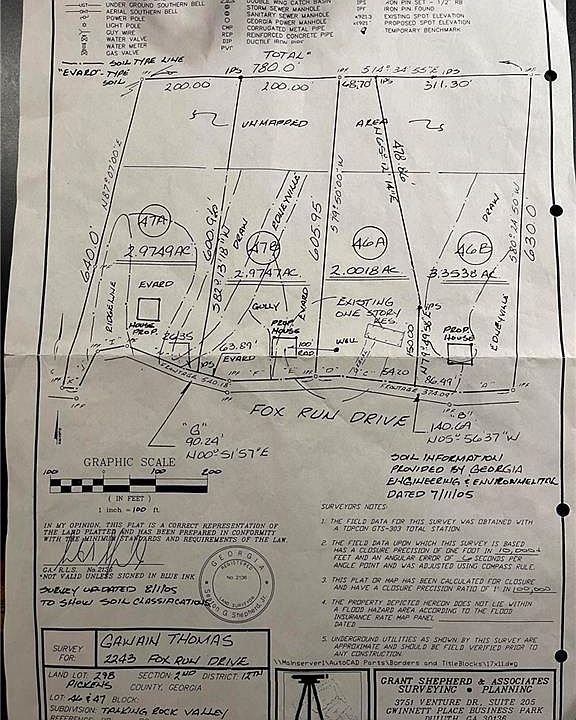 UNDER GROUND SOUTHERN BELL
AERIAL SOUTHERN BELL
POWER POLE
LIGHT POLE
GUY WIRE
WATER METER
GAS VALVE
WATER VALVE
DOUBLE WING CATCH BASIN
STORM SEWER MANHOLE
SANITARY SEWER MANHOLE
GEORGIA POWER MANHOLE
CMP CORRUGATED METAL PIPE
RCP REINFORCED CONCRETE PIPE
DIP DUCTILE IRON PIPE
PVC
IPS IRON PIN SET - 1/2" RB
IPF IRON PIN FOUND
EXISTING SPOT ELEVATION
PROPOSED SPOT ELEVATION
TEMPORARY BENCHMARK
SOIL TYPE LINE
"EVARD"-TYPE SOIL
TOTAL"
780.0'
IPF 200.00 IPS 200.00 IPF 68.70' IPS S14°34'55"E IPS 311.30' IPF
UNMAPPED AREA
N87°07'00"E
640.0'
600.96'
S82°13'18"W
605.95
S79°50'00"W
478.86'
N65°12'14"E
S80°24'50"W
630.0'
DRAW
EDNEYVILLE
DRAW
47A
2.9749AC.
47B
2.9747AC.
46A
2.0018AC
46B
3.3538AC
EVARD
RIDGELINE
HOUSE PROP.
GULLY
EVARD
EXISTING ONE STORY RES.
PROP. HOUSE
100' RAD
WELL
PROP. HOUSE
EDNEYVILLE
IPS
150.00'
N79°49'58"E
63.89'
EVARD
IPS
86.49'
FRONTAGE 540.18'
FRONTAGE 374.09'
"F" "E" "D" "C" "A"
IPF
FOX RUN DRIVE
"G"
90.24'
N00°51'57"E
"B"
140.69'
N05°56'37"W
GRAPHIC SCALE
100 0 100 200
( IN FEET )
1 inch = 100 ft.
SOIL INFORMATION
PROVIDED BY GEORGIA
ENGINEERING & ENVIRONMENTAL
DATED 7/11/05
IN MY OPINION, THIS PLAT IS A CORRECT REPRESENTATION OF
THE LAND PLATTED AND HAS BEEN PREPARED IN CONFORMITY
WITH THE MINIMUM STANDARDS AND REQUIREMENTS OF THE LAW.
GA. R.L.S. No. 2136
*NOT VALID UNLESS SIGNED IN BLUE INK
SURVEY UPDATED 8/1/05
TO SHOW SOIL CLASSIFICATIONS
GEORGIA
REGISTERED
No. 2136
LAND SURVEYOR
SURVEYORS NOTES:
1. THE FIELD DATA FOR THIS SURVEY WAS OBTAINED WITH
A TOPCON GTS-303 TOTAL STATION.
2. THE FIELD DATA UPON WHICH THIS SURVEY IS BASED
HAS A CLOSURE PRECISION OF ONE FOOT IN 15,000+
FEET AND AN ANGULAR ERROR OF SECONDS PER
ANGLE POINT AND WAS ADJUSTED USING COMPASS RULE.
3. THIS PLAT OR MAP HAS BEEN CALCULATED FOR CLOSURE
AND HAVE A CLOSURE PRECISION RATIO OF 1' IN 100,000
4. THE PROPERTY DEPICTED HEREON DOES NOT LIE WITHIN
A FLOOD HAZARD AREA ACCORDING TO THE FLOOD
INSURANCE RATE MAP PANEL
DATED
5. UNDERGROUND UTILITIES AS SHOWN BY THIS SURVEY ARE
APPROXIMATE AND SHOULD BE FIELD VERIFIED PRIOR TO
ANY CONSTRUCTION.
\\Mainserver1\AutoCAD Parts\Borders and TitleBlocks\17x11.dwg
SURVEY FOR: GAWAIN THOMAS
2243 FOX RUN DRIVE
LAND LOT: 298 SECTION: 2ND DISTRICT: 12TH
PICKENS COUNTY, GEORGIA
LOT: 46 & 47 BLOCK:
SUBDIVISION: TALKING ROCK VALLEY
GRANT SHEPHERD & ASSOCIATES
SURVEYING • PLANNING
3751 VENTURE DR., SUITE 205
GWINNETT PLACE BUSINESS PARK
DULUTH, GA 30136